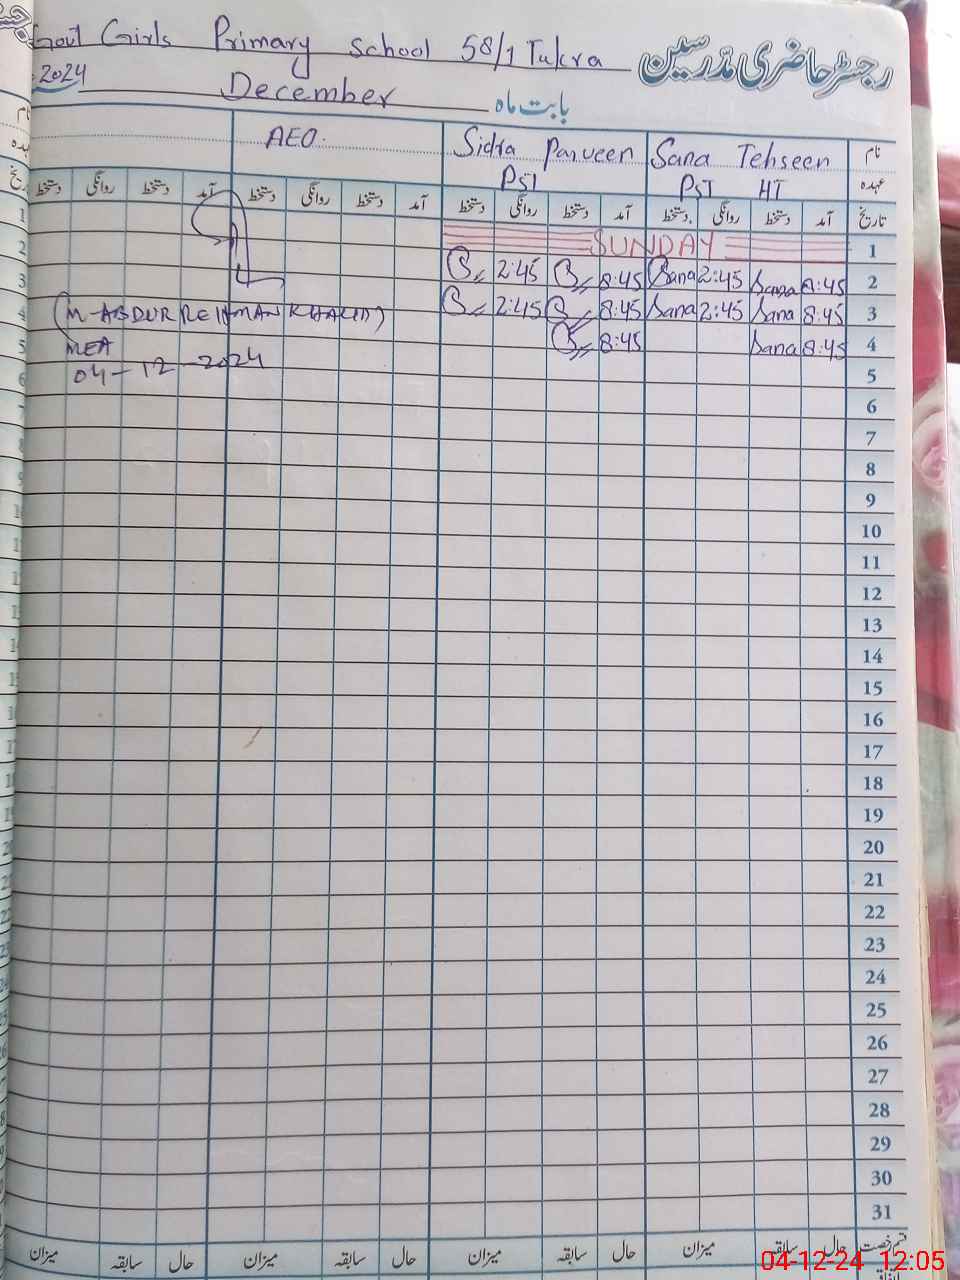 Govt Girls Primary School 58/1 Tukra
رجسٹر حاضری مدرسین
2024 December بابت ماہ
نام Sana Tehseen Sidra Parveen AEO.
عہدہ PST HT PST
تاریخ آمد دستخط روانگی دستخط آمد دستخط روانگی دستخط آمد دستخط روانگی دستخط آمد دستخط روانگی دستخط
1 SUNDAY
2 8:45 Sana 2:45 Sana 8:45 2:45
3 8:45 Sana 2:45 Sana 8:45 2:45
4 8:45 Sana 8:45
(M-ABDUR REHMAN KHALID)
MEA
04-12-2024
5
6
7
8
9
10
11
12
13
14
15
16
17
18
19
20
21
22
23
24
25
26
27
28
29
30
31
قسم رخصت حال سابقہ میزان حال سابقہ میزان حال سابقہ میزان حال سابقہ میزان
04-12-24 12:05